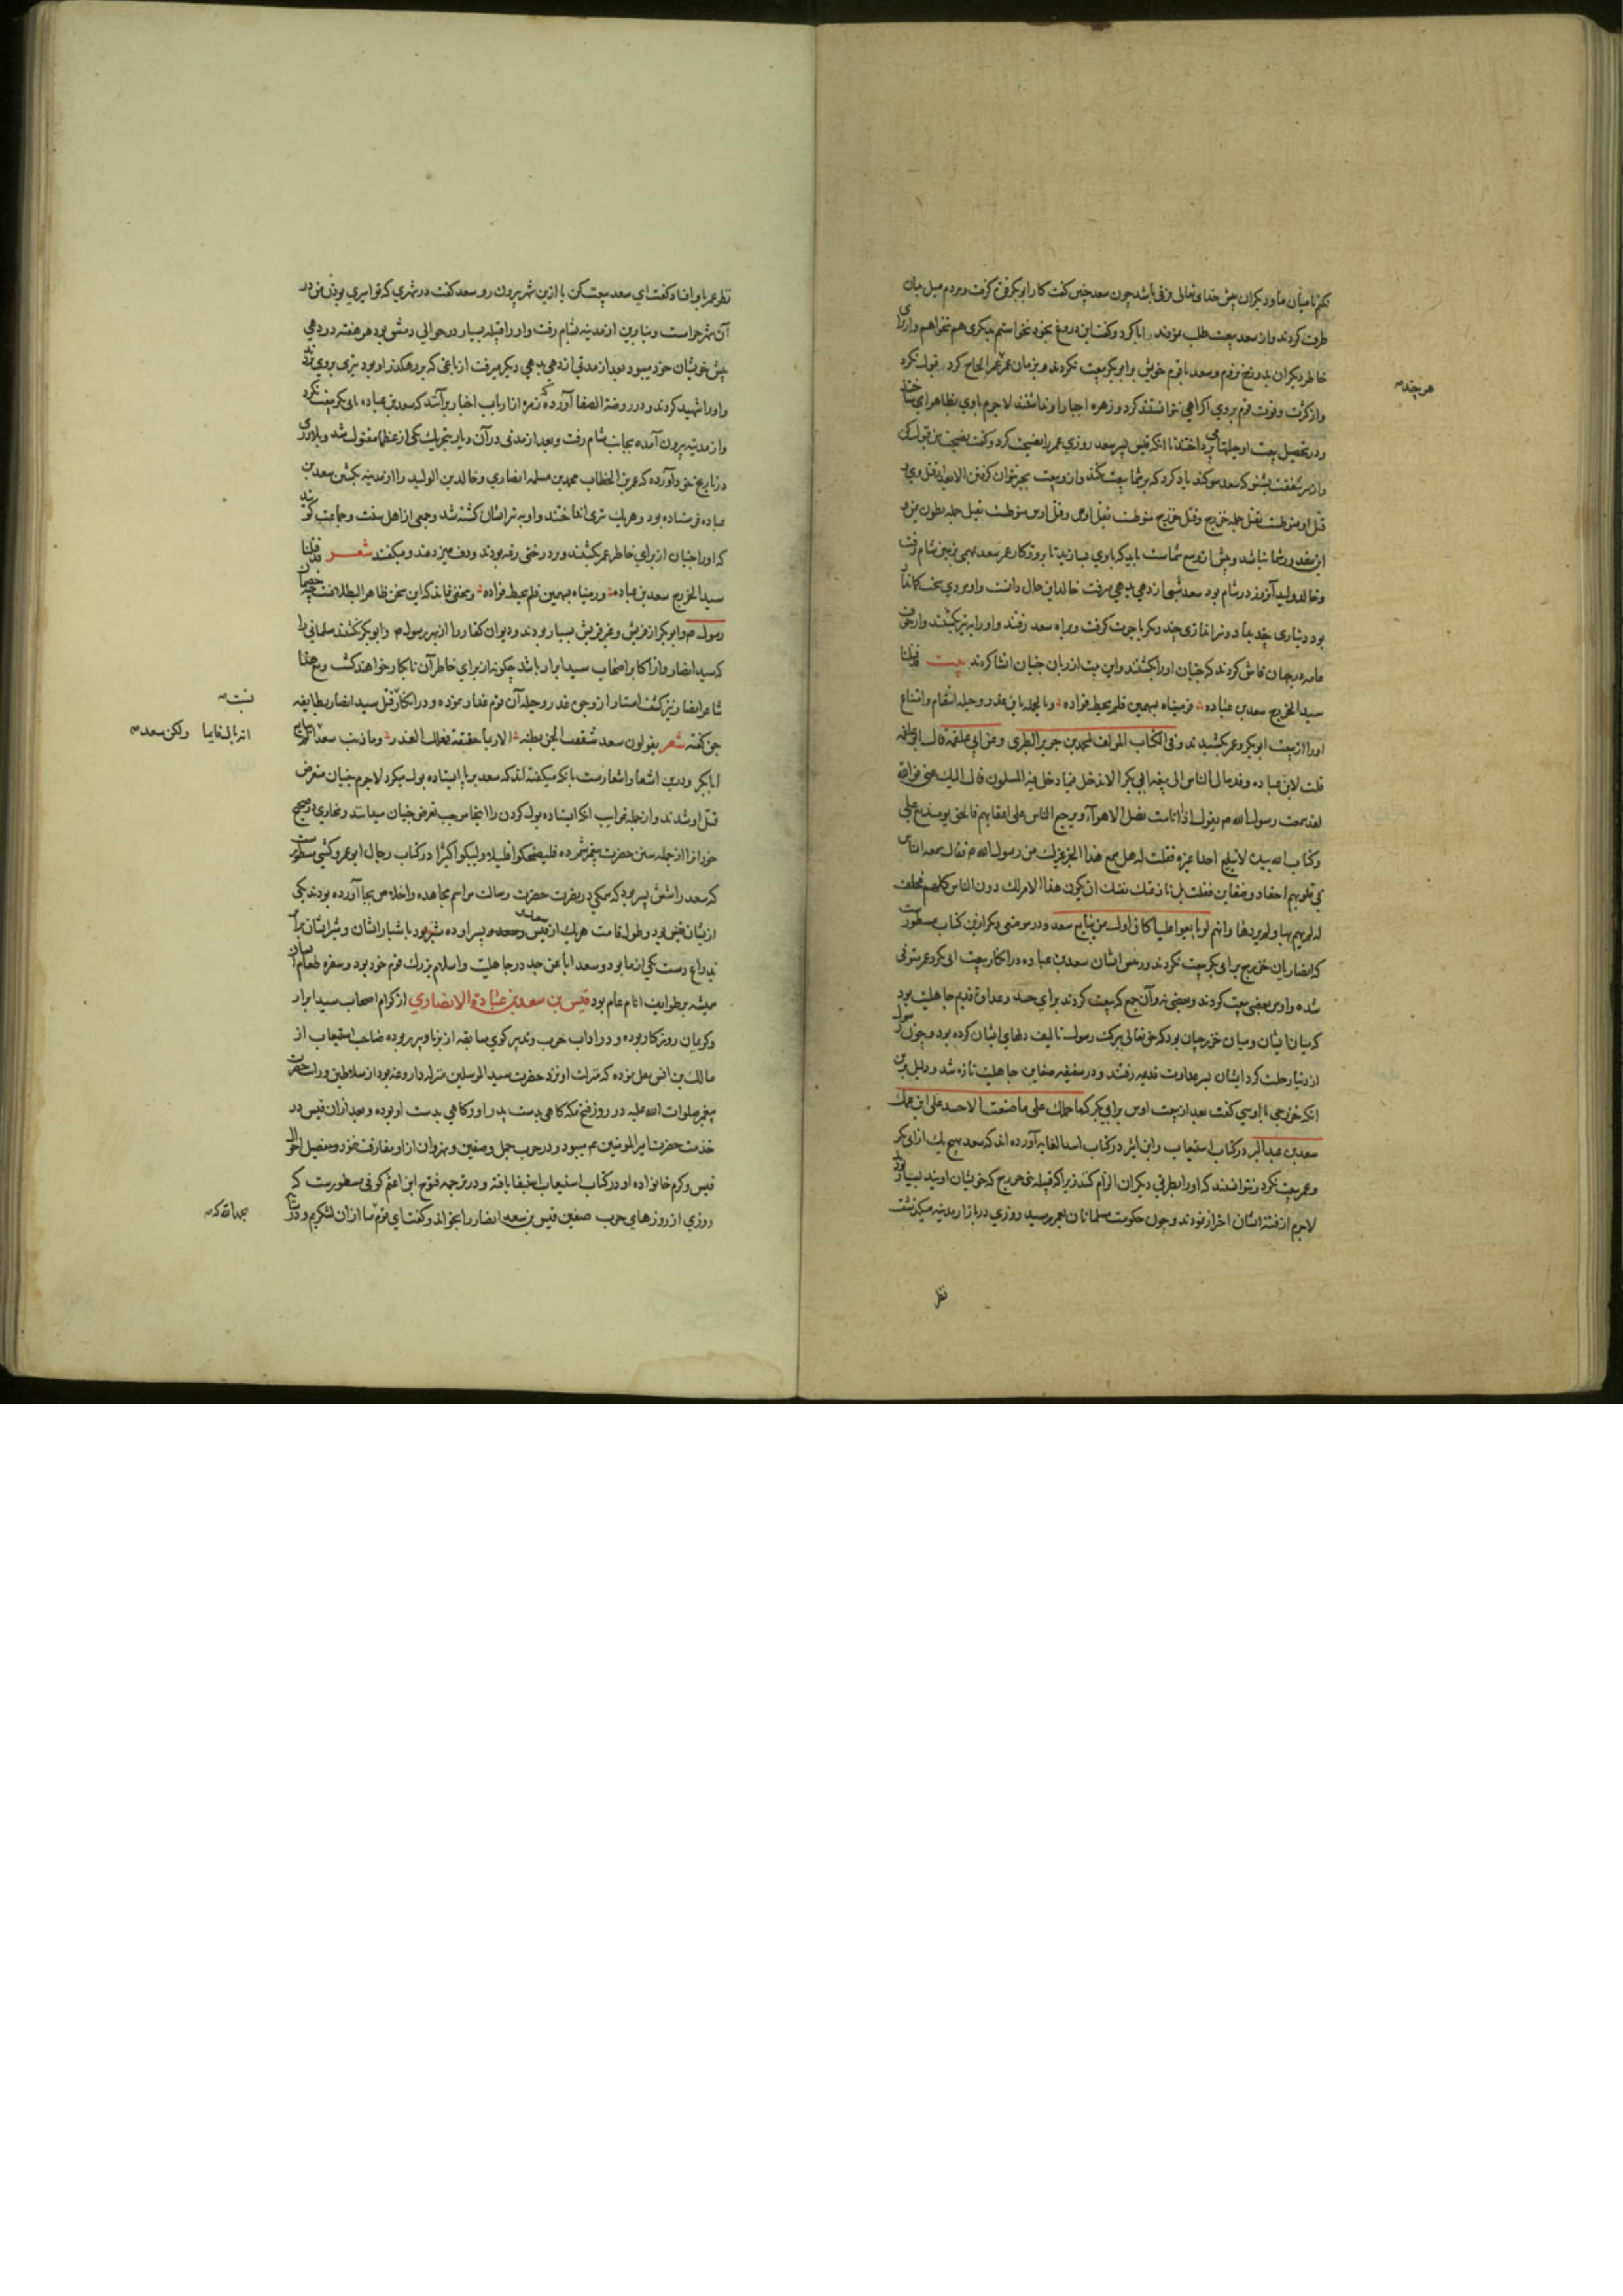 نکنم تا میان ما و دیگران پیش خدای تعالی فرقی باشد چون سعد چنین گفت کار ابوبکر قوی گرفت و مردم میل بدان
طرف کردند و از سعد بیعت طلب نمودند ابا کرد و گفت این دروغ بخود نخواستم بدیگری هم نخواهم و از برای
خاطر دیگران بدوزخ نروم و سعد با قوم خویش بر ابوبکر بیعت نکردند و در زمان عمر عمر الحاح کرد قبول نکرد
هرچند
و از کثرت و قوت قوم بروی اکراهی نتوانستند کرد و زهره اجبار او نداشتند لاجرم با وی بظاهر
و در تحصیل بیعت او حیلتها می پرداختند تا آنکه قیس پسر سعد روزی عمر را نصیحت کرد و گفت نصیحت من قبول کن
و از من بشنو که سعد سوگند یاد کرد که بر شما بیعت نکند و از وی بیعت بجبر نتوان گرفتن الا بعد از قتل وی و
قتل او منوطست بقتل جمله خزرج و قتل خزرج منوطست بقتل اوس و قتل اوس منوطست بقتل جمله بطون یمن و
این مقدور شما نباشد
و خالد ولید آن روز در شام بود سعد شبی از دهی بدهی میرفت خالد این حال دانست و او مردی سخت کماندار
بود دیناری چند بداد و تیراندازی چند دیگر باجرت گرفت و براه سعد رفتند و او را بتیر بکشتند و از خوف
عامه در جهان فاش کردند که جنیان او را بکشتند و این بیت از زبان جنیان انشا کردند بیت قد قتلنا
سید الخزرج سعد بن عباده فرمیناه بسهمین فلم یخط فواده و بالجمله باین غدر و حیله انتقام و امتناع
او را از بیعت ابوبکر و عمر کشیدند و فی الکتاب المؤلف لمحمد بن جریر الطبری و عن ابی علقمه قال
قلت لابن عباده و قد مال الناس الی بیعة ابی بکر الا تدخل فیما دخل فیه المسلمون قال الیک عنی فوالله
لقد سمعت رسول الله ص یقول اذا انا مت تضل الاهوآء و یرجع الناس علی اعقابهم فالحق یومئذ مع علی
و کتاب الله بیده لا نبایع احدا غیره فقلت له هل سمع هذا الخبر غیرک من رسول الله ص فقال سمعه اناس
فی قلوبهم احقاد و ضغاین فقلت بل نازعتک نفسک ان یکون هذا الامر لک دون الناس کلهم فحلف
له لم یهم بها و لم یردها و انهم لو بایعوا علیا کان اول من بایع سعد و در موضعی دیگر ازین کتاب مسطورست
که انصاریان خزرج بر ابی بکر بیعت نکردند و رئیس ایشان سعد بن عباده در انکار بیعت ابی بکر و عمر متوفی
شده و اوس بعضی بیعت کردند و بعضی نه و آن جمع که بیعت کردند برای حسد و عداوة قدیم جاهلیت بود
که میان ایشان و میان خزرجیان بود که حق تعالی ببرکت رسول تالیف دلهای ایشان کرده بود و چون رسول
از دنیا رحلت کرد ایشان بسر عداوت قدیمه رفتند و در سقیفه ضغاین جاهلیت تازه شد و دلیل برین
آنکه خزرجی با اوسی گفت بعد از بیعت اوس بر ابی بکر کما حملک علی ما صنعت الا حسد علی ابن عمک
سعد بن عبد البر در کتاب استیعاب و ابن اثیر در کتاب اسد الغابه آورده اند که سعد بهیچ یک از ابی بکر
و عمر بیعت نکرد و نتوانستند که او را بطریق دیگران الزام کنند زیرا که قبیله بنی خزرج که خویشان اویند بسیار بودند
لاجرم از فتنه ایشان احتراز نمودند و چون حکومت مسلمانان بعمر رسید روزی در بازار مدینه میگذشت
نظر
نظر عمر باو افتاد گفت ای سعد بیعت کن یا ازین شهر بیرون رو سعد گفت در شهری که تو امیری بودن من در
آن شهر حرامست و بنابرین از مدینه بشام رفت و او را قبیله بسیار در حوالی دمشق بود هر هفته در دهی
پیش خویشان خود میبود بعد از مدتی از دهی بدهی دیگر میرفت از باغی که بر رهگذر او بود تیری بروی زدند
و او را شهید کردند و در روضة الصفا آورده که زمره از ارباب اخبار برآنند که سعد بن عباده بابی بکر بیعت نکرد
و از مدینه بیرون آمده بجانب شام رفت و بعد از مدتی در آن دیار بتحریک یکی از عظما مقتول شد و بلاذری
در تاریخ خود آورده که عمر بن الخطاب محمد بن مسلمه انصاری و خالد بن الولید را از مدینه بکشتن سعد بن
عباده فرستاده بود و هر یک تیری انداختند و او به تیر ایشان کشته شد و جمعی از اهل سنت و جماعت گویند
که او را جنیان از برای خاطر عمر بکشتند و بر درختی رفته بودند و دف میزدند و میگفتند شعر قد قتلنا
سید الخزرج سعد بن عباده ورمیناه بسهمین فلم یخط فواده و مخفی نماند که این سخن ظاهر البطلانست چه خصمان
رسول ص و ابوبکر از قریش و غیر قریش بسیار بودند و دیوان کفار را از بهر رسول ص و ابوبکر نکشتند مسلمانی را
که سید انصار و از اکابر اصحاب سید ابرار باشد چگونه از برای خاطر آن نابکار خواهند کشت و مع هذا
شاعر انصار نیز کشف استار از وجوه غدر و حیله آن قوم غدار نموده و در انکار قتل سید انصار بطایفه
نسبت
جن گفته شعر یقولون سعد شقت الجن بطنه الا ربما حققت فعلک الغدر و ما ذنب سعد
انه بال قایما ولکن سعد
ابابکر و درین اشعار اشعارست بآنکه میگفته اند که سعد بر پا ایستاده بول میکرد لاجرم جنیان متعرض
قتل او شدند و از جمله غرایب آنکه ایستاده بول کردن را اینجا سبب تعرض جنیان میدانند و بخاری در صحیح
خود آنرا از جمله سنن حضرت پیغمبر شمرده فلیضحکوا قلیلا ولیبکوا کثیرا در کتاب رجال ابو عمرو کشی مسطورست
که سعد را شش پسر بود که همگی در نصرت حضرت رسالت مراسم مجاهده و اخلاص بجا آورده بودند یکی
ازیشان قیس بود و طول قامت هر یک از قیس و سعد پسر او ده شبر بود باشبار ایشان و شبر ایشان برابر
یک ذراع دست یکی از ما بود و سعد ابا عن جد در جاهلیت و اسلام بزرگ قوم خود بود و سفره طعام ایشان
همیشه بر طوایف انام عام بود قیس بن سعد بن عبادة الانصاری از کرام اصحاب سید ابرار
و کریمان روزگار بوده و در اداب حرب و تدبیر گوی مسابقه از برنا و پیر ربوده صاحب استیعاب از
مالک بن انس نقل نموده که منزلت او نزد حضرت سید المرسلین منزله داروغه بود از سلاطین و رایت حضرت
پیغمبر صلوات الله علیه در روز فتح مکه گاهی بدست پدر او و گاهی بدست او بوده و بعد از آن قیس در
خدمت حضرت امیر المومنین ع میبود و در حرب جمل و صفین و نهروان از او مفارقت ننمود و تفصیل احوال
قیس و کرم خانواده او در کتاب استیعاب استیفا یافته و در ترجمه فتوح ابن اعثم کوفی مسطورست که
روزی از روزهای حرب صفین قیس بن سعد انصار را بخواند و گفت ای قوم ما از آن لشکریم و
بحمد الله که